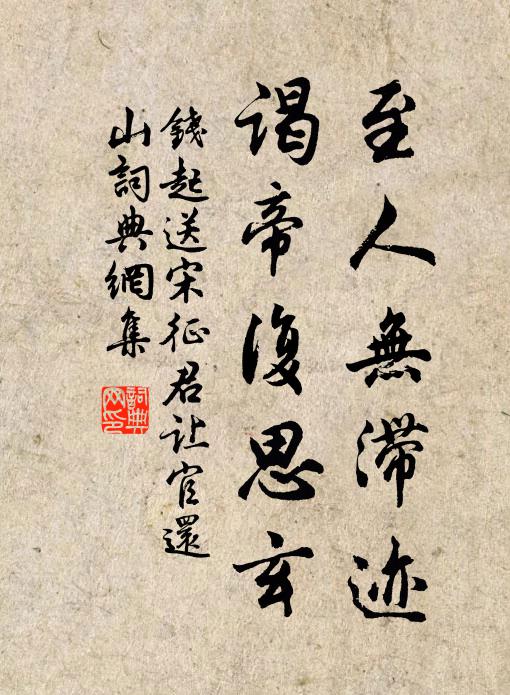 至人無滯迹
謁帝復思玄
錢起送宋征君让官還
山詞典網集
詞典
网印